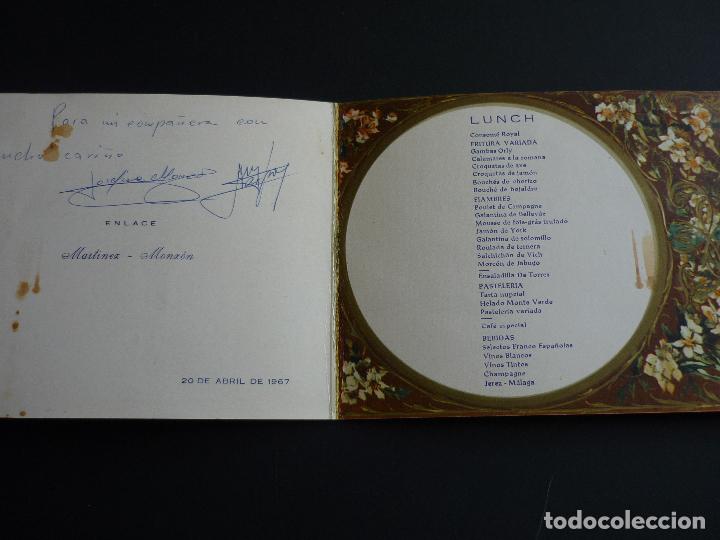 Para mi compañera con
mucho cariño
ENLACE
Martínez - Monzón
20 DE ABRIL DE 1967
LUNCH
Consomé Royal
FRITURA VARIADA
Gambas Orly
Calamares a la romana
Croquetas de ave
Croquetas de jamón
Bouchés de chorizo
Bouché de hojaldre
FIAMBRES
Poulet de Campagne
Galantina de Bellevue
Mousse de foie-grás trufado
Jamón de York
Galantina de solomillo
Roulada de ternera
Salchichón de Vich
Morcón de Jabugo
Ensaladilla Da Torres
PASTELERIA
Tarta nupcial
Helado Monte Verde
Pastelería variada
Café especial
BEBIDAS
Selectos Franco Españolas
Vinos Blancos
Vinos Tintos
Champagne
Jerez - Málaga
todocoleccion
todocoleccion.net